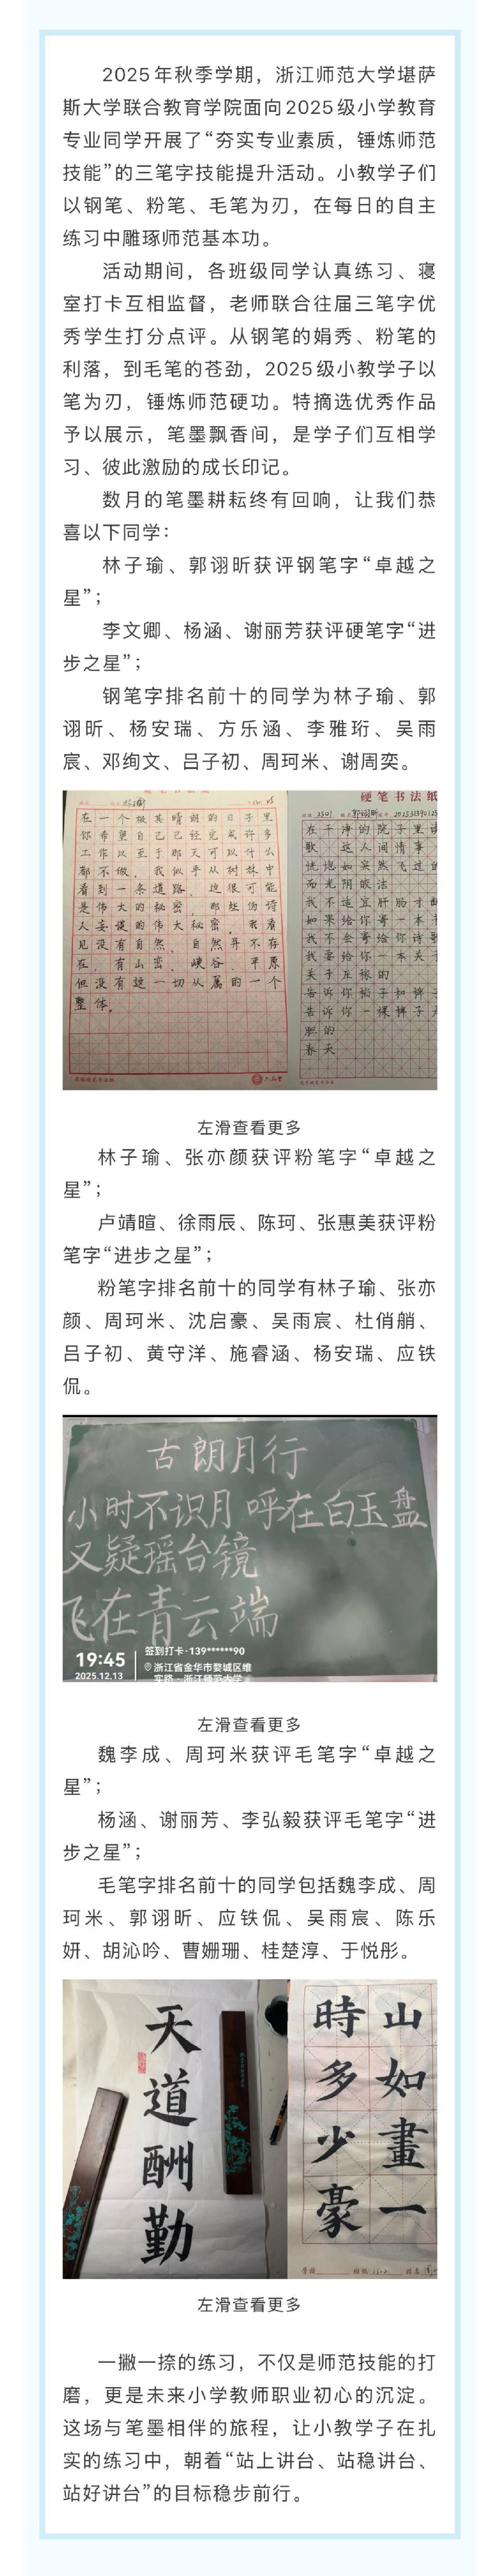 2025年秋季学期，浙江师范大学堪萨
斯大学联合教育学院面向2025级小学教育
专业同学开展了“夯实专业素质，锤炼师范
技能”的三笔字技能提升活动。小教学子们
以钢笔、粉笔、毛笔为刃，在每日的自主
练习中雕琢师范基本功。
活动期间，各班级同学认真练习、寝
室打卡互相监督，老师联合往届三笔字优
秀学生打分点评。从钢笔的娟秀、粉笔的
利落，到毛笔的苍劲，2025级小教学子以
笔为刃，锤炼师范硬功。特摘选优秀作品
予以展示，笔墨飘香间，是学子们互相学
习、彼此激励的成长印记。
数月的笔墨耕耘终有回响，让我们恭
喜以下同学：
林子瑜、郭诩昕获评钢笔字“卓越之
星”；
李文卿、杨涵、谢丽芳获评硬笔字“进
步之星”；
钢笔字排名前十的同学为林子瑜、郭
诩昕、杨安瑞、方乐涵、李雅珩、吴雨
宸、邓绚文、吕子初、周珂米、谢周奕。
在一个极其晴朗的日子里
你希望自己已轻完成许多
工作以至于那天可以什么
都不做．我似乎从树林中
看到一条道路．这很可能
是伟大的秘密，那些伪诗
人妄谈的伟大秘密．我看
见没有自然．自然并不存
在．有山峦．峡谷．平原
但没有这一切从属的一个
整体。
硬笔书法纸
郭诩昕
在干净的院子里读
歌 这人间情事
恍惚如突然飞过的
而光阴皎洁
我不适宜肝肠寸断
如果给你寄一本书
我不会寄给你诗歌
我要给你一本关于
关于庄稼的
告诉你稻子和稗子
告诉你一棵稗子
胆的
春天
左滑查看更多
林子瑜、张亦颜获评粉笔字“卓越之
星”；
卢靖暄、徐雨辰、陈珂、张惠美获评粉
笔字“进步之星”；
粉笔字排名前十的同学有林子瑜、张亦
颜、周珂米、沈启豪、吴雨宸、杜俏艄、
吕子初、黄守洋、施睿涵、杨安瑞、应铁
侃。
古朗月行
小时不识月 呼在白玉盘
又疑瑶台镜
飞在青云端
19:45
2025.12.13
签到打卡·139******90
浙江省金华市婺城区维
实路·浙江师范大学
左滑查看更多
魏李成、周珂米获评毛笔字“卓越之
星”；
杨涵、谢丽芳、李弘毅获评毛笔字“进
步之星”；
毛笔字排名前十的同学包括魏李成、周
珂米、郭诩昕、应铁侃、吴雨宸、陈乐
妍、胡沁吟、曹姗珊、桂楚淳、于悦彤。
天道酬勤
山如畫一
時多少豪
左滑查看更多
一撇一捺的练习，不仅是师范技能的打
磨，更是未来小学教师职业初心的沉淀。
这场与笔墨相伴的旅程，让小教学子在扎
实的练习中，朝着“站上讲台、站稳讲台、
站好讲台”的目标稳步前行。